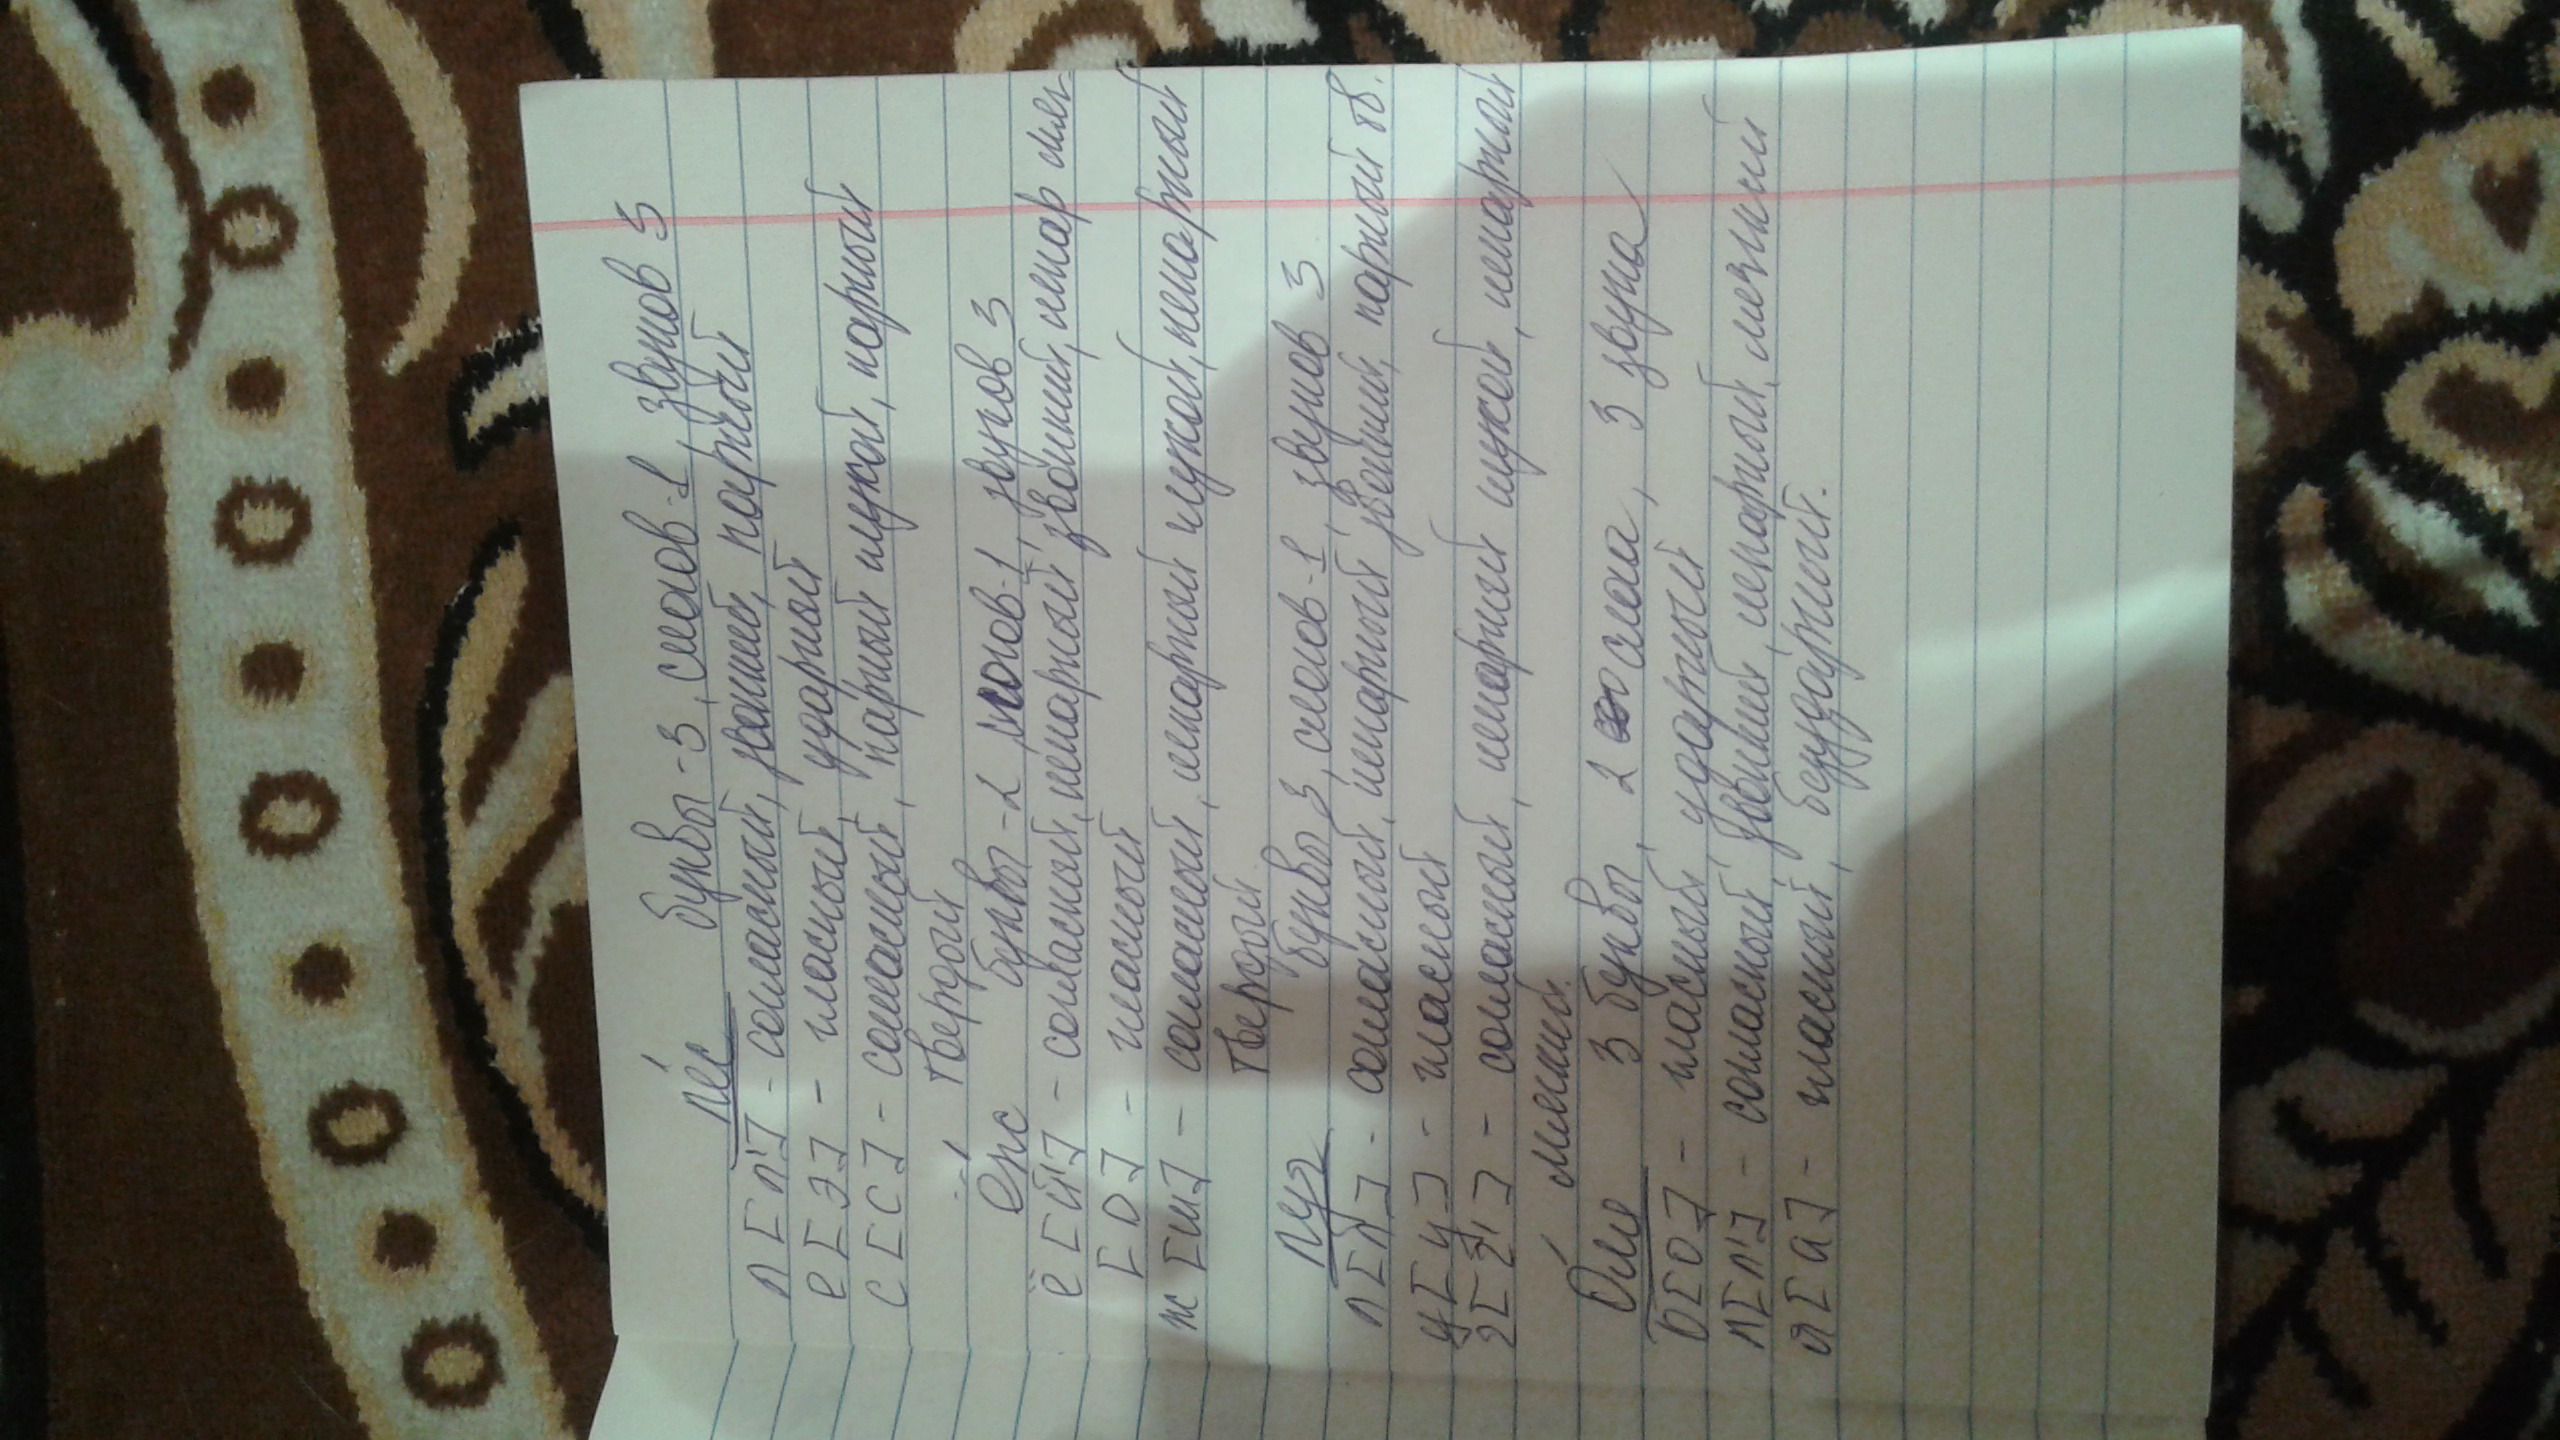 лес буквы - 3, слогов - 1 звуков 3
л [л'] - согласный, звонкий, парный
е [э] - гласный, ударный
с [с] - согласный, парный глухой, парный
твердый
ёж буквы - 2 слогов - 1, звуков 3
ё [й'] - согласный, непарный, звонкий, непар мяг
[о] - гласный
ж [ш] - согласный, непарный глухой, непарный
твердый.
луг буквы 3 слогов - 1, звуков 3
л [л] - согласный, непарный звонкий, парный тв.
у [у] - гласный
г [г'] - согласный, непарный глухой, непарный
мягкий.
Оля 3 буквы, 2 слога, 3 звука
О [О] - гласный, ударный
л [л'] - согласный звонкий, непарный, мягкий
я [а] - гласный, безударный.